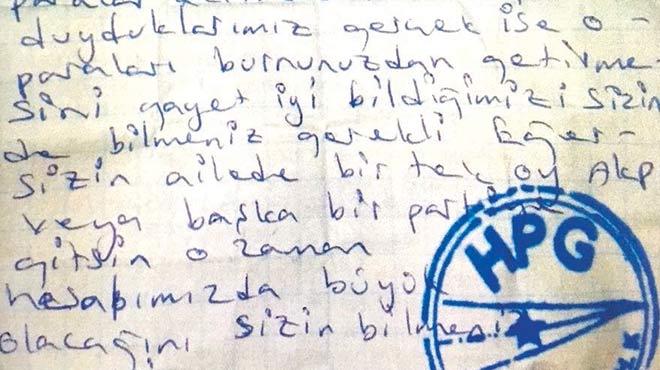 duyduklarımız gerçek ise o-
paraları burnunuzdan getirme-
sini gayet iyi bildiğimizi sizin
de bilmeniz gerekli Eğer-
sizin ailede bir tek oy AKP
veya başka bir
gitsin o zaman
hesabımızda büyük
olacağını sizin
HPG